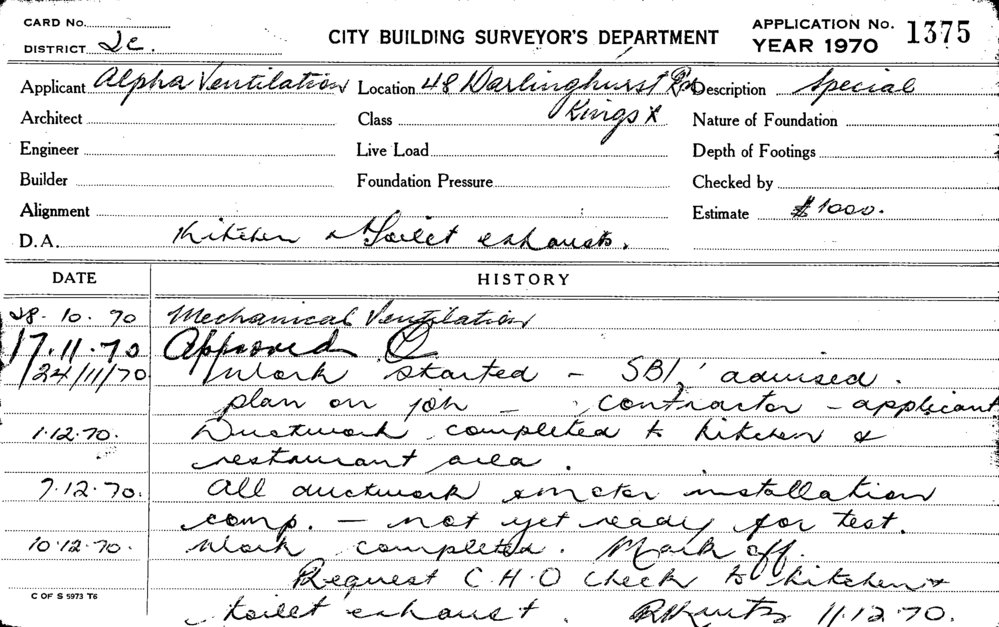 CARD No.
DISTRICT 2c.
CITY BUILDING SURVEYOR'S DEPARTMENT
APPLICATION No. 1375
YEAR 1970
Applicant Alpha Ventilation Location 48 Darlinghurst Rd Description Special
Architect Class Kings X Nature of Foundation
Engineer Live Load Depth of Footings
Builder Foundation Pressure Checked by
Alignment Estimate $1000.
D.A. Kitchen & Toilet exhausts.
DATE HISTORY
28.10.70 Mechanical Ventilation
17.11.70 Approved
24/11/70 Work started - SBI, advised.
plan on job - contractor - applicant
1.12.70. Ductwork completed to kitchen &
restaurant area.
7.12.70. All ductwork & motor installation
comp. - not yet ready for test.
10.12.70. Work completed. Mark off.
Request C.H.O check to kitchen &
toilet exhaust. 11.12.70.
C OF S 5973 T6